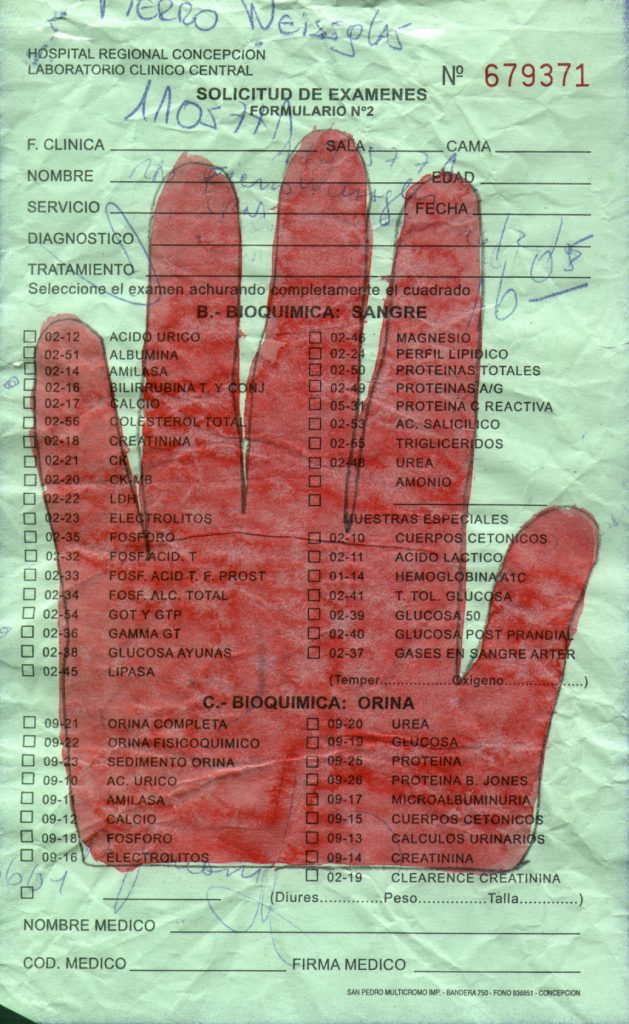 PIERRO Neisiglas
HOSPITAL REGIONAL CONCEPCIÓN
LABORATORIO CLINICO CENTRAL
Nº 679371
SOLICITUD DE EXAMENES
FORMULARIO Nº2
110577A
F. CLINICA SALA CAMA
NOMBRE EDAD
SERVICIO FECHA
DIAGNOSTICO
TRATAMIENTO
Seleccione el examen achurando completamente el cuadrado
B.- BIOQUIMICA: SANGRE
02-12 ACIDO URICO 02-46 MAGNESIO
02-51 ALBUMINA 02-24 PERFIL LIPIDICO
02-14 AMILASA 02-50 PROTEINAS TOTALES
02-16 BILIRRUBINA T. Y CONJ 02-49 PROTEINAS A/G
02-17 CALCIO 05-31 PROTEINA C REACTIVA
02-56 COLESTEROL TOTAL 02-53 AC. SALICILICO
02-18 CREATININA 02-55 TRIGLICERIDOS
02-21 CK 02-48 UREA
02-20 CK-MB AMONIO
02-22 LDH
02-23 ELECTROLITOS MUESTRAS ESPECIALES
02-35 FOSFORO 02-10 CUERPOS CETONICOS
02-32 FOSF.ACID. T 02-11 ACIDO LACTICO
02-33 FOSF. ACID T. F. PROST 01-14 HEMOGLOBINA A1C
02-34 FOSF. ALC. TOTAL 02-41 T. TOL. GLUCOSA
02-54 GOT Y GTP 02-39 GLUCOSA 50
02-36 GAMMA GT 02-40 GLUCOSA POST PRANDIAL
02-38 GLUCOSA AYUNAS 02-37 GASES EN SANGRE ARTER
02-45 LIPASA (Temper...............Oxigeno...................)
C.- BIOQUIMICA: ORINA
09-21 ORINA COMPLETA 09-20 UREA
09-22 ORINA FISICOQUIMICO 09-19 GLUCOSA
09-23 SEDIMENTO ORINA 09-25 PROTEINA
09-10 AC. URICO 09-26 PROTEINA B. JONES
09-11 AMILASA 09-17 MICROALBUMINURIA
09-12 CALCIO 09-15 CUERPOS CETONICOS
09-18 FOSFORO 09-13 CALCULOS URINARIOS
09-16 ELECTROLITOS 09-14 CREATININA
02-19 CLEARENCE CREATININA
(Diures.............Peso..............Talla............)
NOMBRE MEDICO
COD. MEDICO FIRMA MEDICO
SAN PEDRO MULTICROMO IMP. - BANDERA 750 - FONO 936851 - CONCEPCION